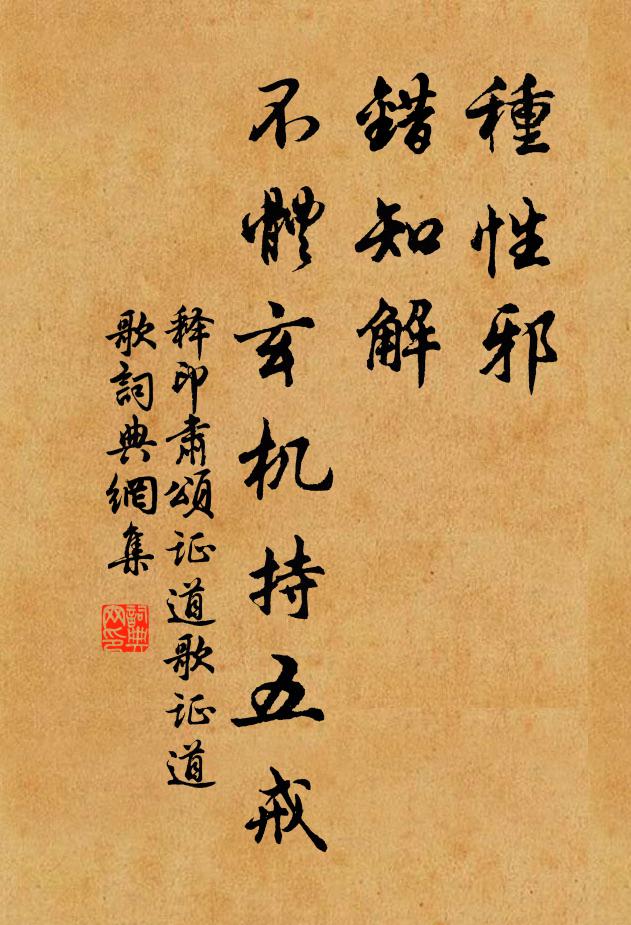 種性邪
錯知解
不體玄机持五戒
释印肃頌证道歌证道
歌詞典網集
詞典網印